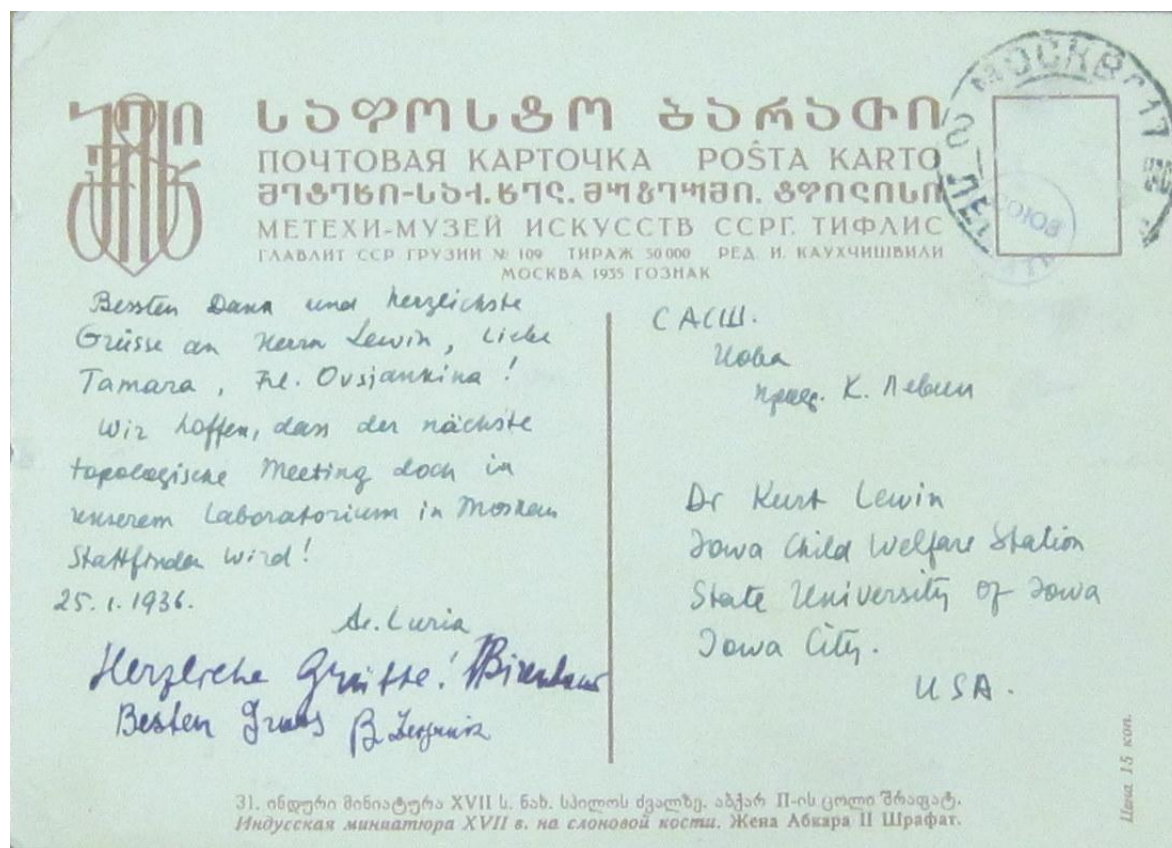 საფოსტო ბარათი
ПОЧТОВАЯ КАРТОЧКА POŜTA KARTO
მეტეხი-საქ. ხელ. მუზეუმი. ტფილისი
МЕТЕХИ-МУЗЕЙ ИСКУССТВ ССРГ. ТИФЛИС
ГЛАВЛИТ ССР ГРУЗИИ № 109 ТИРАЖ 50000 РЕД. И. КАУХЧИШВИЛИ
МОСКВА 1935 ГОЗНАК
МОСКВА 17
Bessten Dank und herzlichste
Grüsse an Herrn Lewin, Liebe
Tamara, Frl. Ovsjankina!
Wir hoffen, dass der nächste
topologische Meeting doch in
unserem Laboratorium in Moskau
Stattfinden wird!
25.1.1936.
Al. Luria
Herzliche Grüsse! Birenbaum
Besten Gruss B Zeigarnik
САСШ.
Иова
проф. К. Левин
Dr Kurt Lewin
Iowa Child Welfare Station
State University of Iowa
Iowa City.
USA.
Цена 15 коп.
31. ინდური მინიატურა XVII ს. ნახ. სპილოს ძვალზე. აბქარ II-ის ცოლი შრაფატ.
Индусская миниатюра XVII в. на слоновой кости. Жена Абкара II Шрафат.